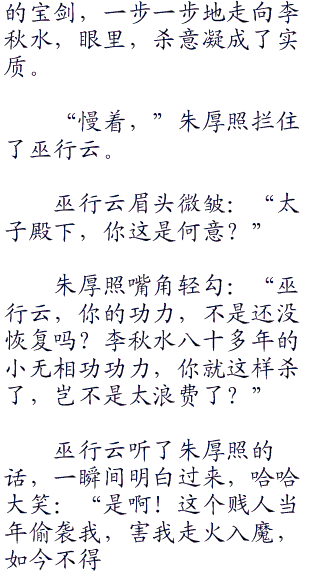 的宝剑，一步一步地走向李
秋水，眼里，杀意凝成了实
质。
“慢着，”朱厚照拦住
了巫行云。
巫行云眉头微皱：“太
子殿下，你这是何意？”
朱厚照嘴角轻勾：“巫
行云，你的功力，不是还没
恢复吗？李秋水八十多年的
小无相功功力，你就这样杀
了，岂不是太浪费了？”
巫行云听了朱厚照的
话，一瞬间明白过来，哈哈
大笑：“是啊！这个贱人当
年偷袭我，害我走火入魔，
如今不得